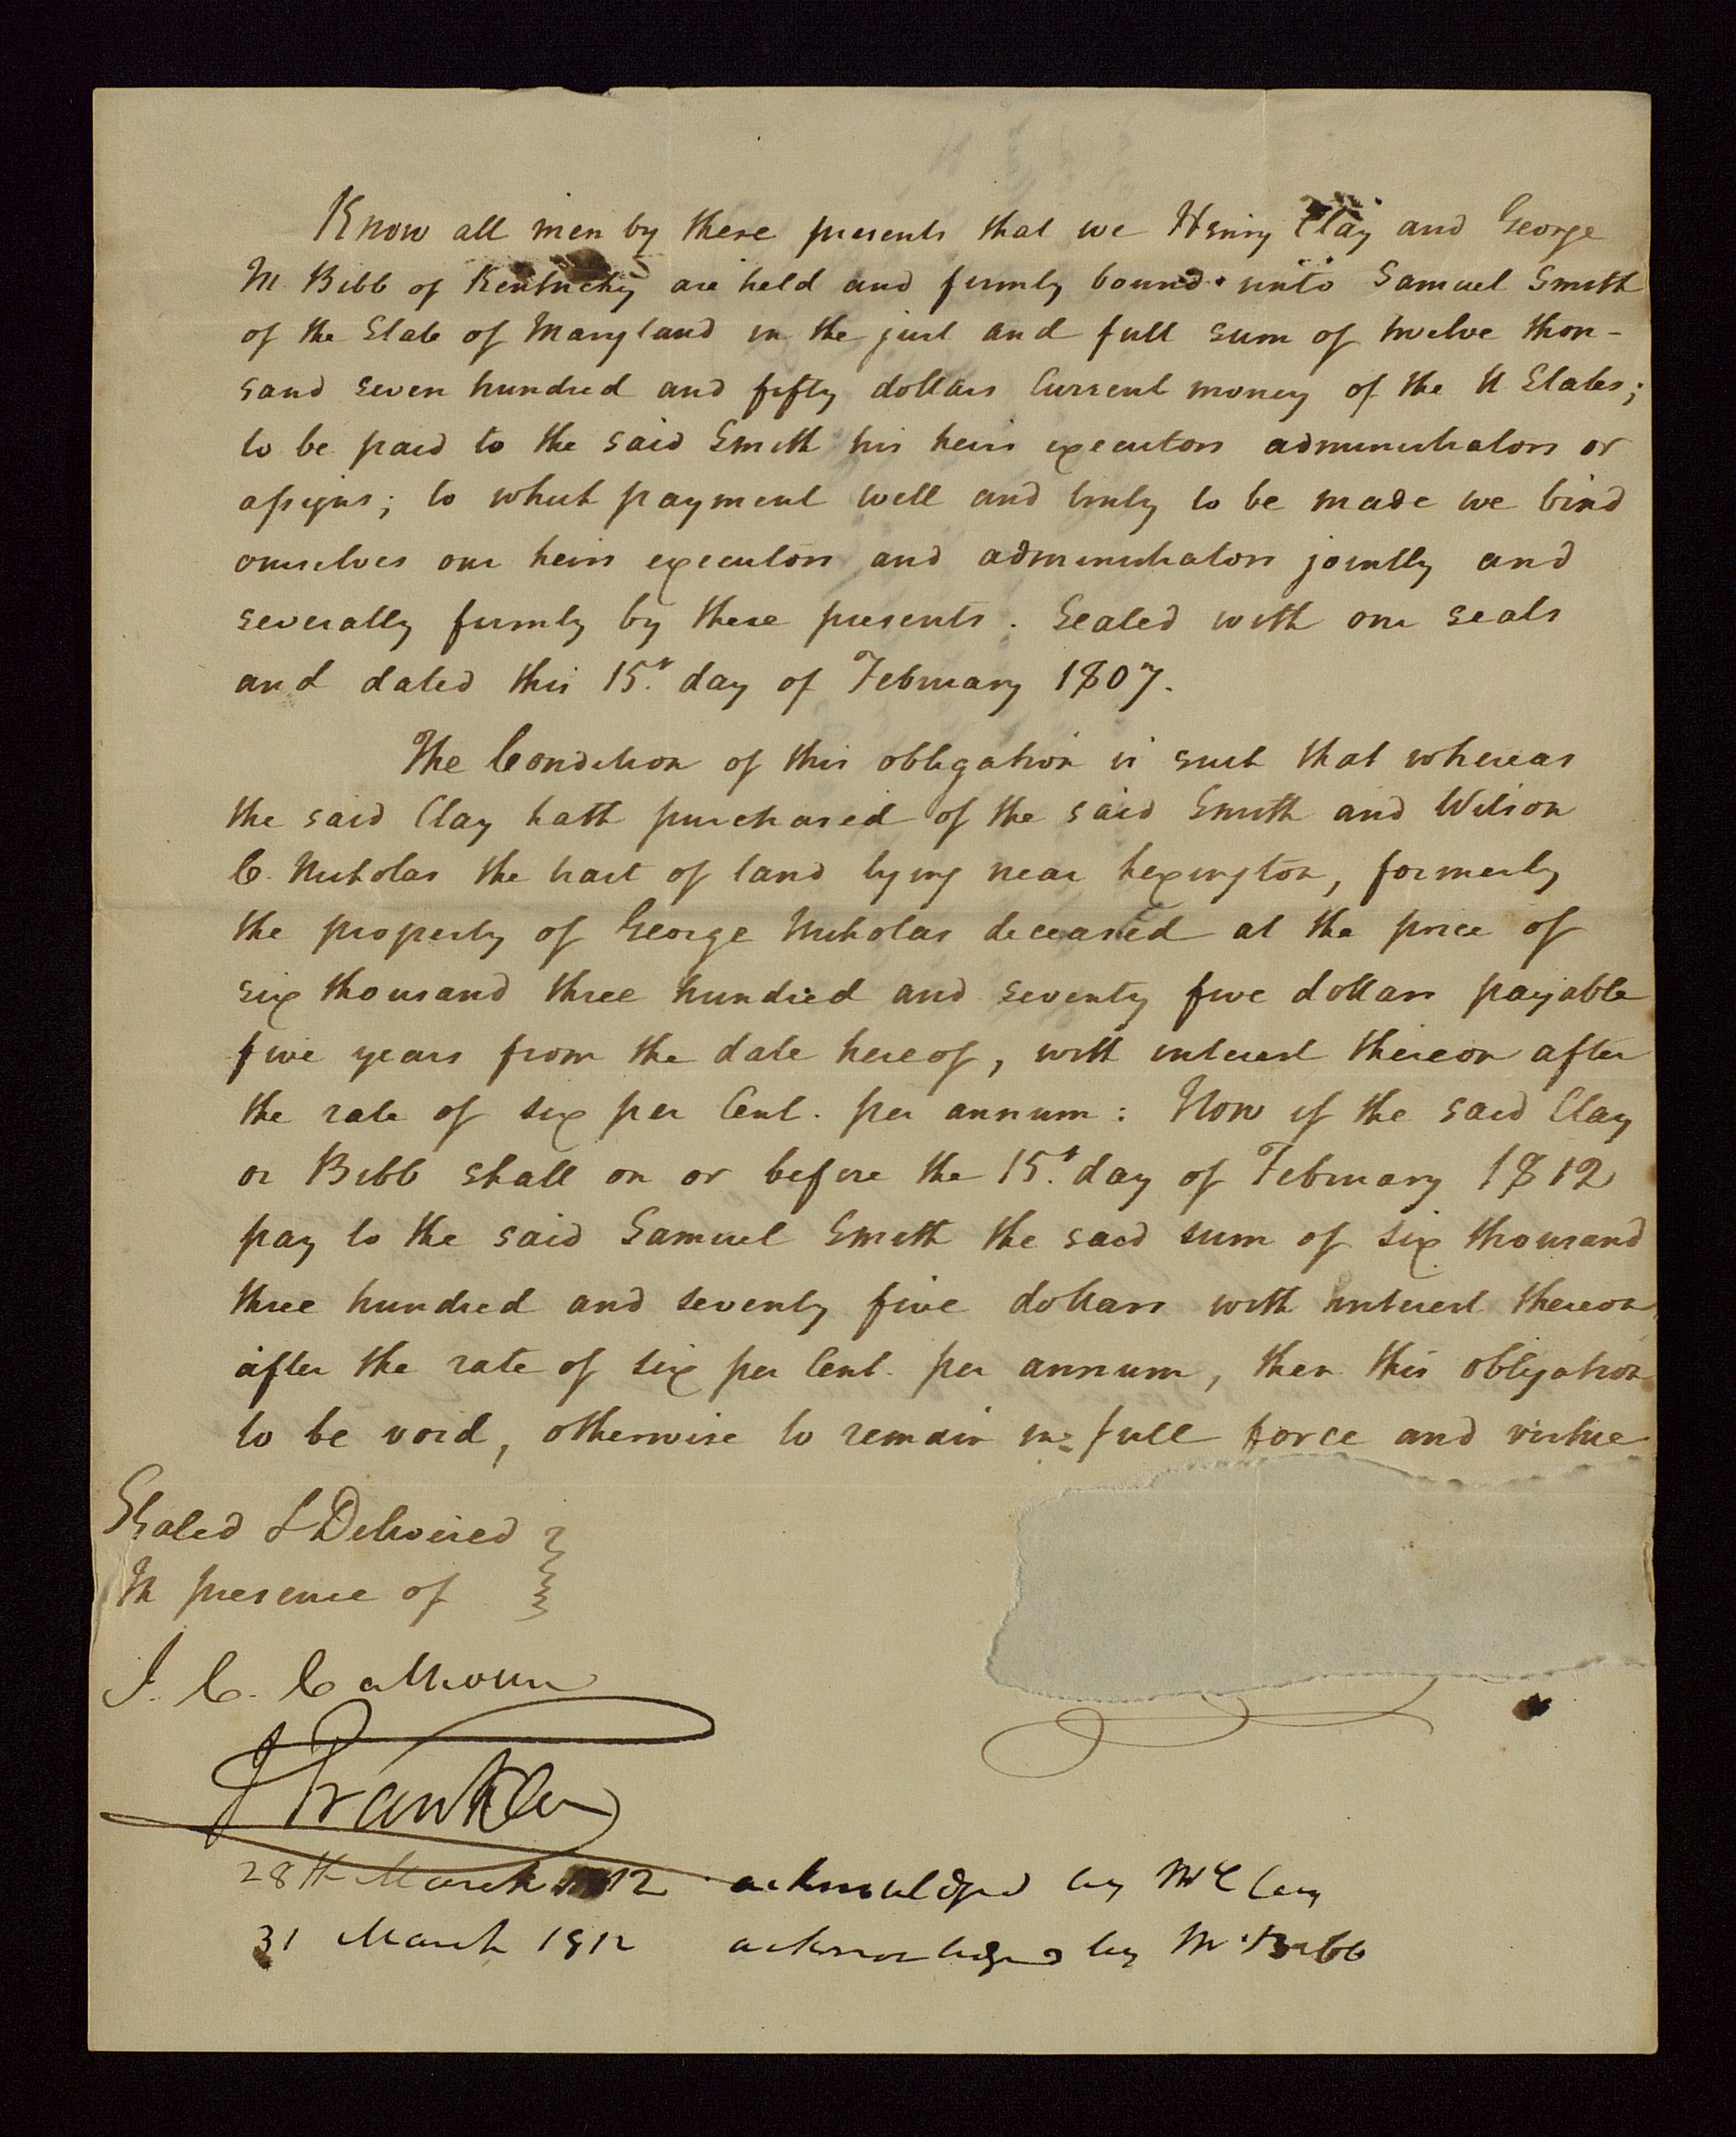 Know all men by these presents that we Henry Clay and George
M. Bibb of Kentucky are held and firmly bound unto Samuel Smith
of the State of Maryland in the just and full sum of twelve thou-
sand seven hundred and fifty dollars Current money of the U States;
to be paid to the said Smith his heirs executors administrators or
assigns; to which payment well and truly to be made we bind
ourselves our heirs executors and administrators jointly and
severally firmly by these presents. Sealed with our seals
and dated this 15t. day of February 1807.
The Condition of this obligation is such that whereas
the said Clay hath purchased of the said Smith and Wilson
C. Nicholas the tract of land lying near Lexington, formerly
the property of George Nicholas deceased at the price of
six thousand three hundred and seventy five dollars payable
five years from the date hereof, with interest thereon after
the rate of six per Cent. per annum: Now if the said Clay
or Bibb shall on or before the 15t. day of February 1812
pay to the said Samuel Smith the said sum of six thousand
three hundred and seventy five dollars with interest thereon
after the rate of six per Cent. per annum, then this obligation
to be void, otherwise to remain in full force and virtue
Sealed & Delivered
In presence of
J. C. Calhoun
J Franklin
28th March 1812 acknowledged by Mr Clay
31 March 1812 acknowledged by Mr. Bibb